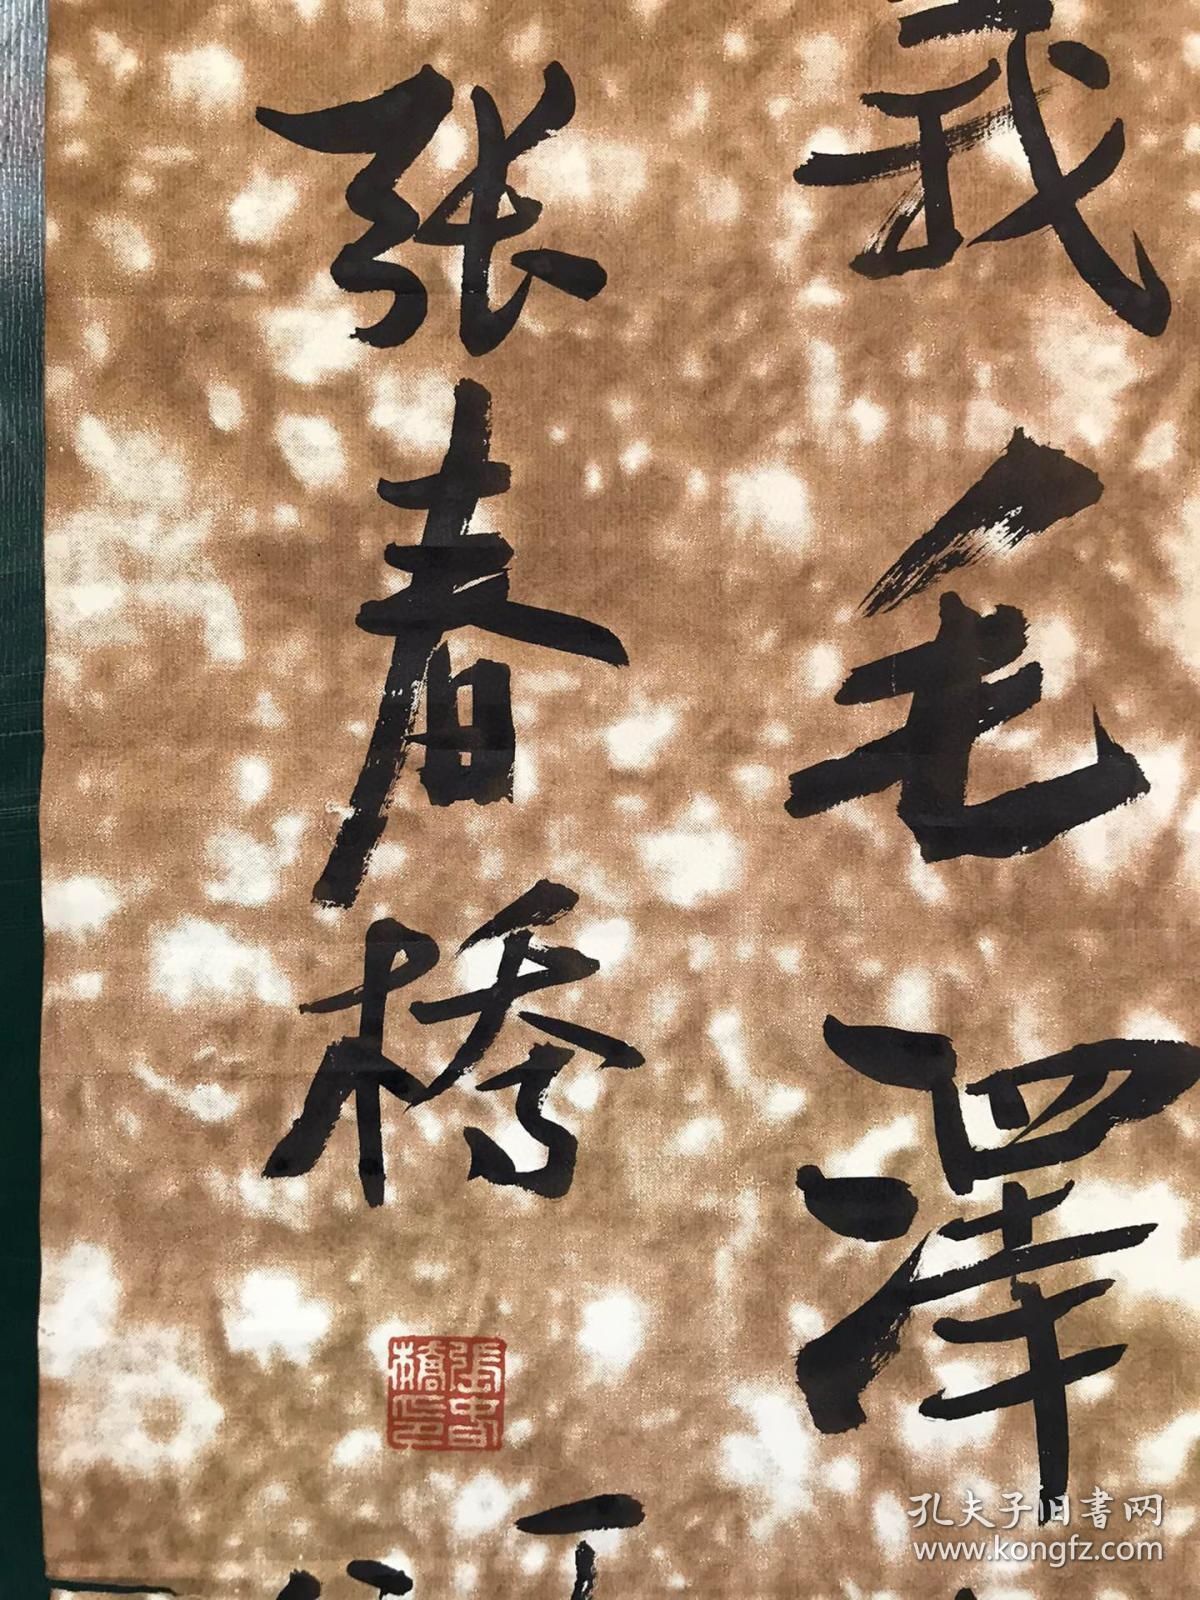 義毛澤
张春橋
張春橋印
孔夫子旧書网
www.kongfz.com